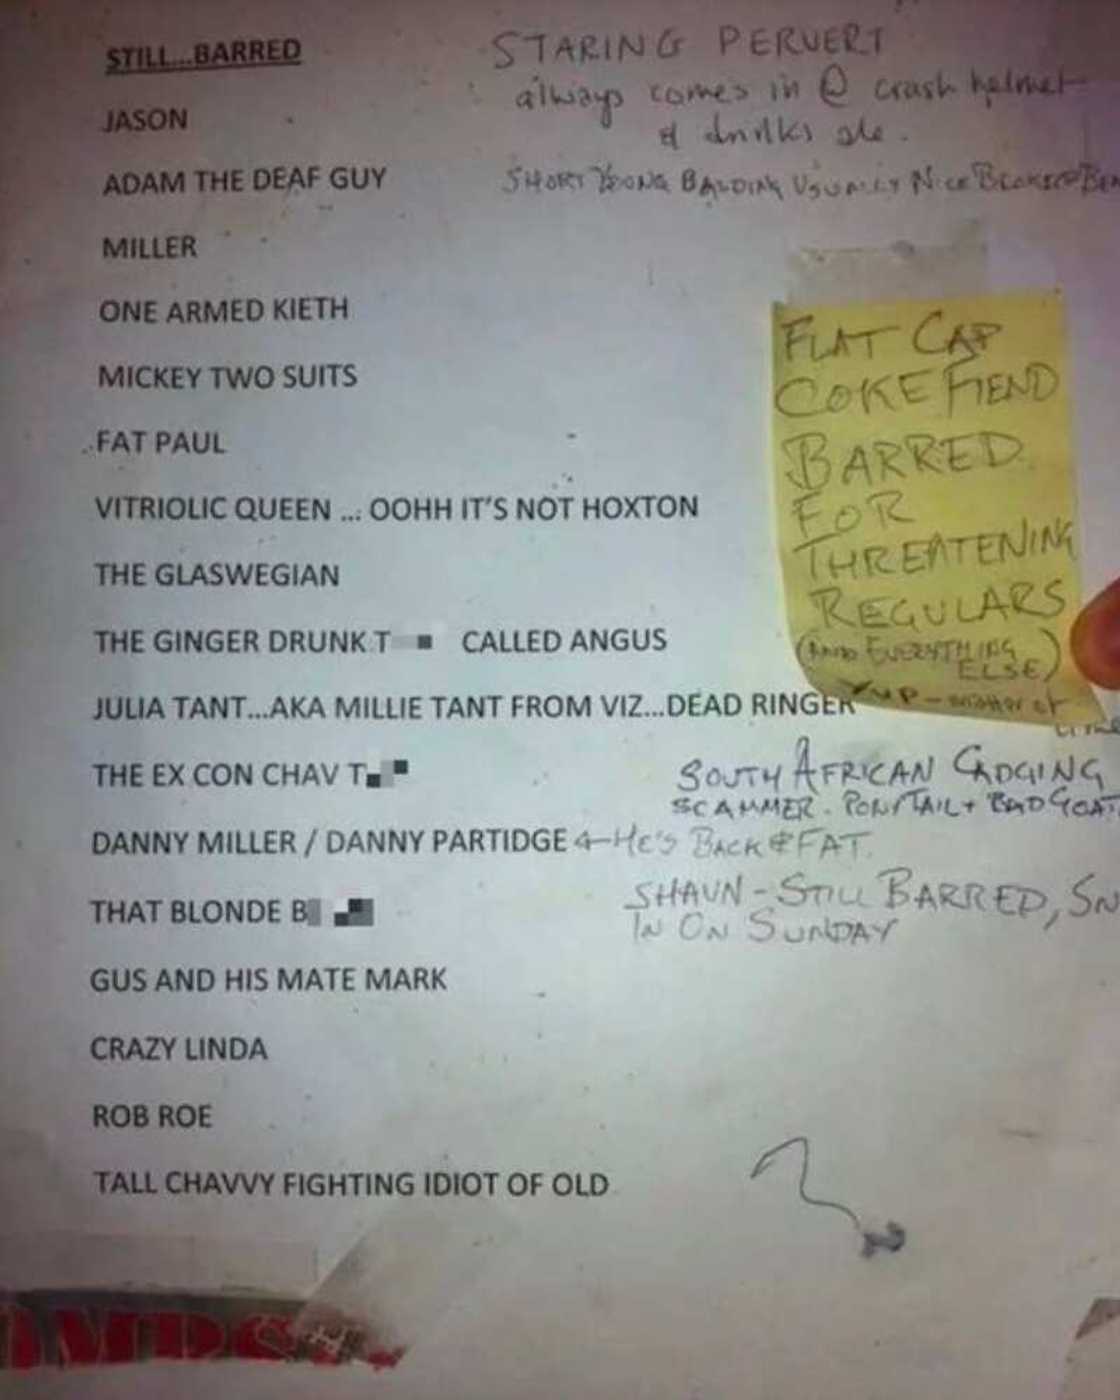 STILL...BARRED
STARING PERVERT
always comes in @ crash helmet
& drinks ale.
JASON
ADAM THE DEAF GUY
SHORT YOUNG BALDING USUALLY NICE
MILLER
ONE ARMED KIETH
MICKEY TWO SUITS
FAT PAUL
VITRIOLIC QUEEN ... OOHH IT'S NOT HOXTON
THE GLASWEGIAN
THE GINGER DRUNK T CALLED ANGUS
JULIA TANT...AKA MILLIE TANT FROM VIZ...DEAD RINGER
THE EX CON CHAV T
DANNY MILLER / DANNY PARTIDGE ← HE'S BACK & FAT.
THAT BLONDE B
GUS AND HIS MATE MARK
CRAZY LINDA
ROB ROE
TALL CHAVVY FIGHTING IDIOT OF OLD
FLAT CAP
COKE FIEND
BARRED
FOR
THREATENING
REGULARS
(AND EVERYTHING
ELSE)
SOUTH AFRICAN CADGING
SCAMMER. PONYTAIL +
SHAUN - STILL BARRED,
IN ON SUNDAY